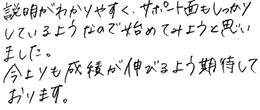 説明がわかりやすく、サポート面もしっかり
しているようなので始めてみようと思い
ました。
今よりも成績が伸びるよう期待して
おります。